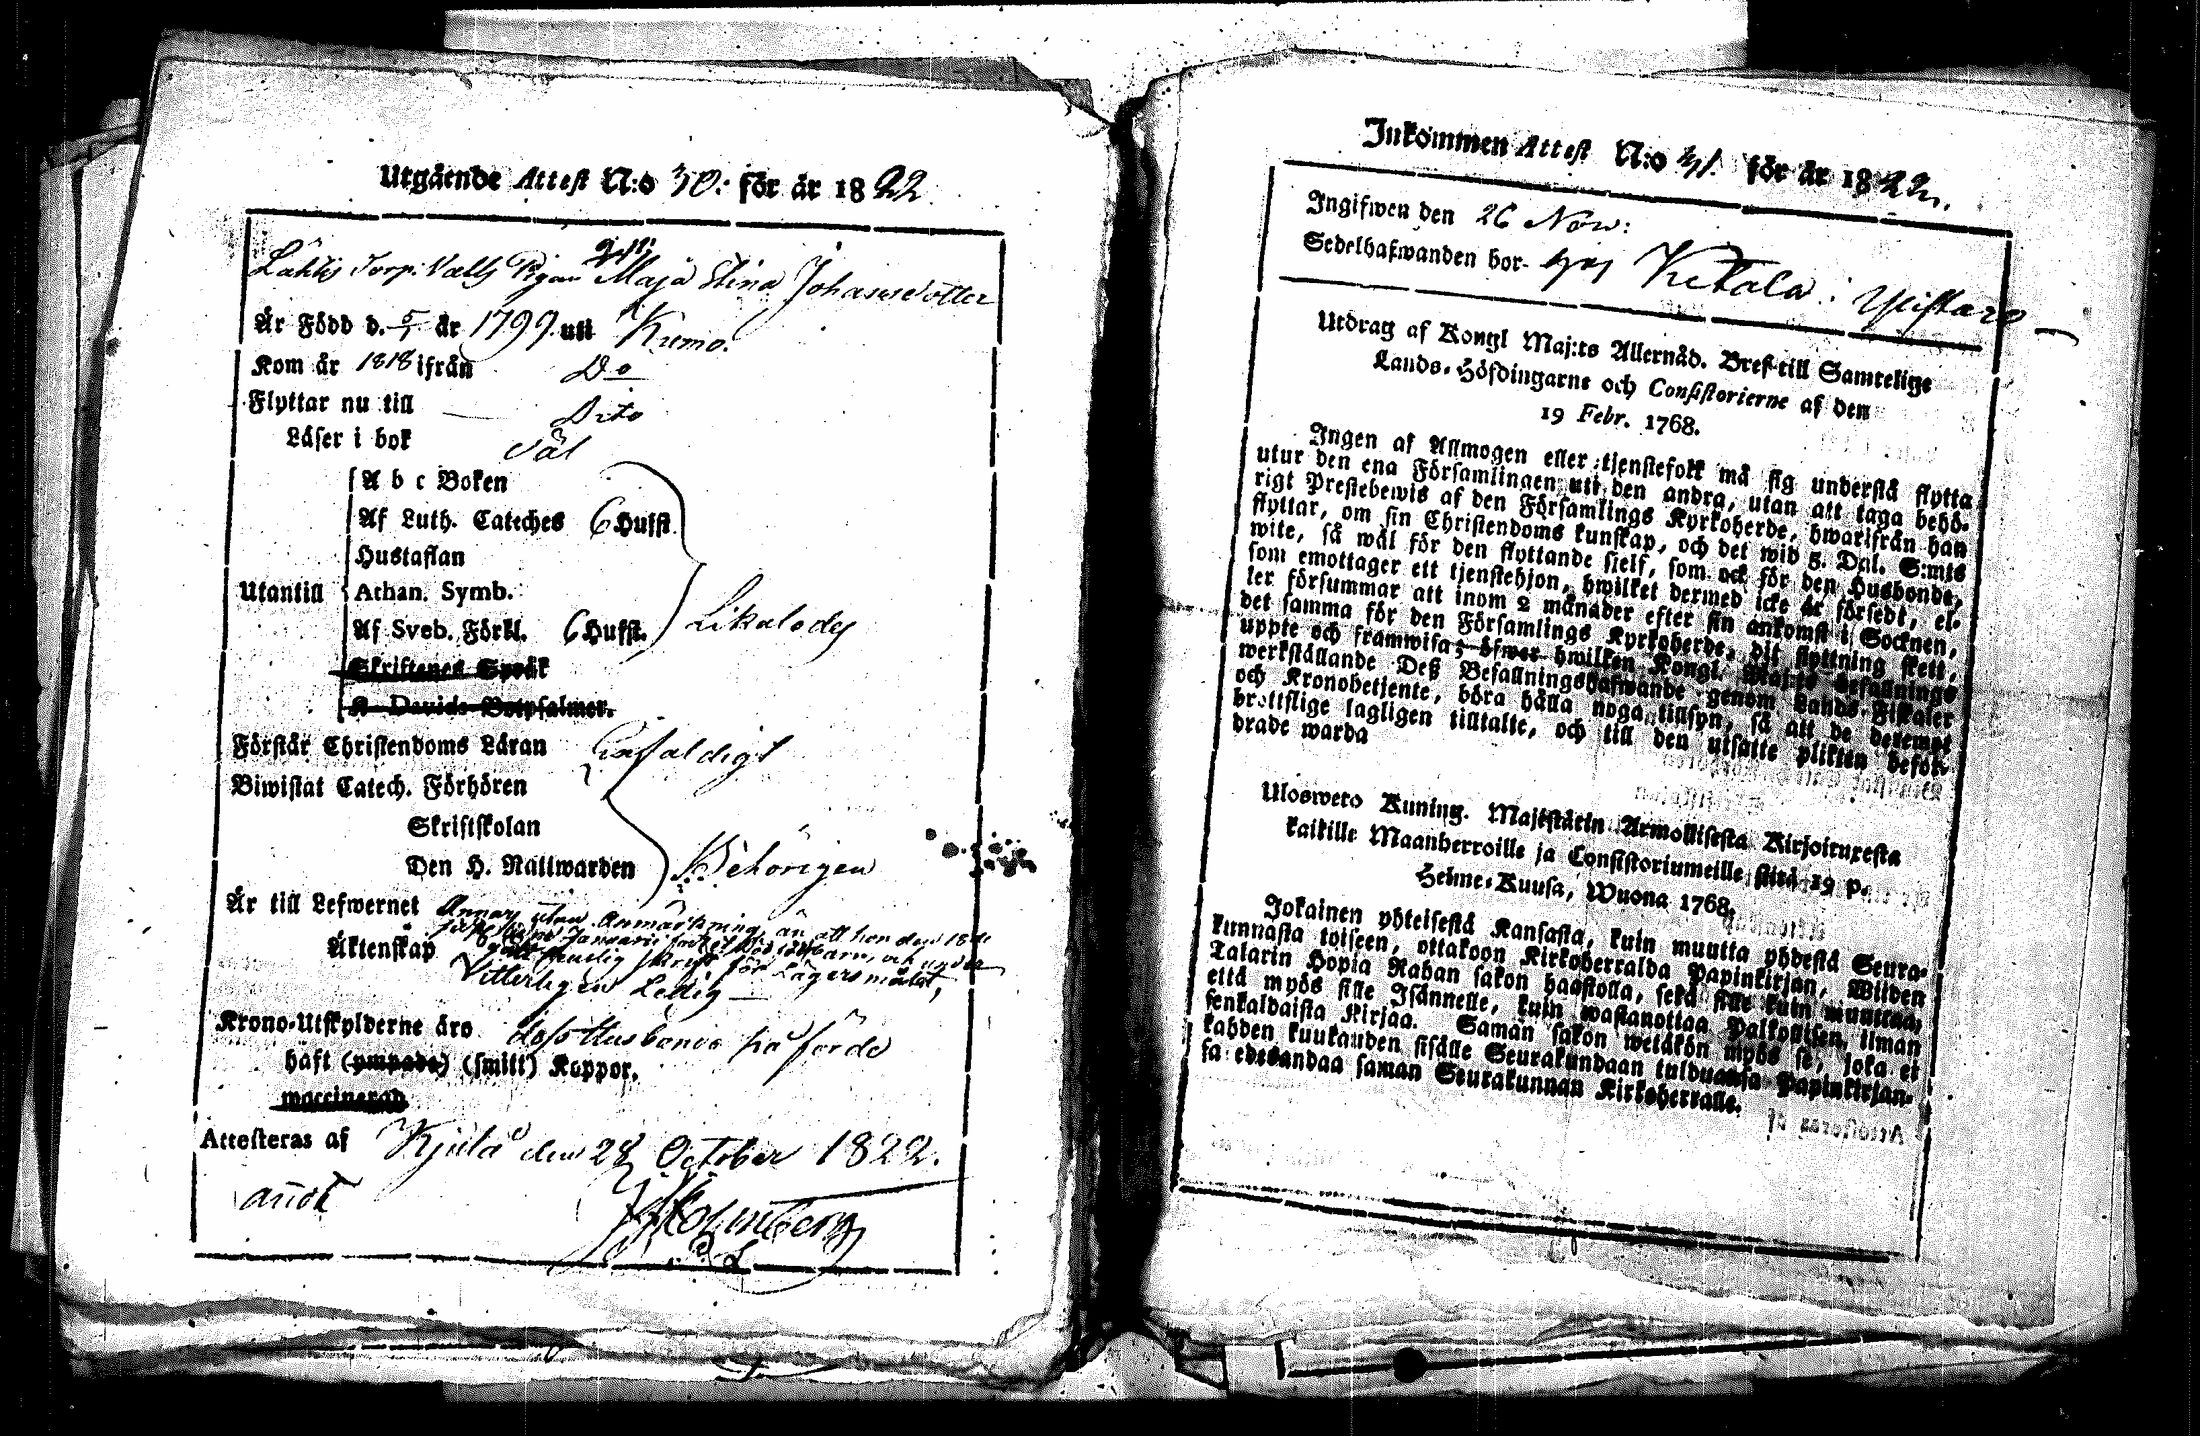 Utgående Attest N:o 30: för år 1822
Lähtis Torp: Välls Pigan Maja Stina Johansdotter
Är Född d. 5/1 år 1799. uti Kumo.
Kom år 1818 ifrån Do
Flyttar nu till Dito
Läser i bok Väl
A b c Boken
Af Luth. Cateches 6 Hufst.
Hustaflan
Utantill Athan. Symb.
Af Sveb. Förkl. 6 Hufst. Likaledes
Skriftenes Språk
K Davids Botpsalmer.
Förstår Christendoms Läran Enfaldigt
Biwistat Catech. Förhören
Skriftskolan
Den H. Nattwarden Behörigen
Är till Lefwernet Annars utan Anmärkning, än att hon den 18de
Januarii födt et oä. barn, och under
gått skrift för Lägersmålet,
Äktenskap Vitterligen Ledig
Krono-Utskylderne äro dess Husbonde påförde
haft (ympade) (smitt) Koppor.
vaccinerad
Attesteras af Kjulå den 28 October 1822.
J Holmberg
Inkommen Attest N:o 31. för år 1822.
Ingifwen den 26 Nov:
Sedelhafwanden bor- hos Ketala i Ylistaro
Utdrag af Kongl Maj:ts Allernåd. Bref till Samtelige
Lands-Höfdingarne och Consistorierne af den
19 Febr. 1768.
Ingen af Allmogen eller tjenstefolk må sig understå flytta
utur den ena Församlingen uti den andra, utan att taga behö-
rigt Prestebewis af den Församlings Kyrkoherde, hwarifrån han
flyttar, om sin Christendoms kunskap, och det wid 5. Dal. S:mts
wite, så wäl för den flyttande sielf, som ock för den Husbonde,
som emottager ett tjenstehjon, hwilket dermed icke är försedt, el-
ler försummar att inom 2 månader efter sin ankomst i Socknen,
det samma för den Församlings Kyrkoherde, dit flyttning skett,
uppte och framwisa; öfwer hwilken Kongl. Maj:ts befallnings
werkställande Deß Befallningshafwande genom Lands-Fiskaler
och Kronobetjente, böra hålla noga tillsyn, så att de deremot
brottslige lagligen tilltalte, och till den utsatte plikten beford-
drade warda
Ulosweto Kuning. Majestätin Armollisesta Kirjoituxesta
kaikille Maanherroille ja Consistoriumeille siitä 19 p.
Helme-Kuusa, Wuona 1768.
Jokainen yhteisestä Kansasta, kuin muutta yhdestä Seura-
kunnasta toiseen, ottakoon Kirkoherralda Papinkirjan, Wiiden
Talarin Hopia Rahan sakon haastolla, sekä sille kuin muuttaa,
että myös sille Isännelle, kuin wastanottaa Palkollisen, ilman
senkaldaista Kirjaa. Saman sakon wetäkön myös se, joka ei
kahden kuukauden sisälle Seurakundaan tulduansa Papinkirjan-
sa edesandaa saman Seurakunnan Kirkoherralle.